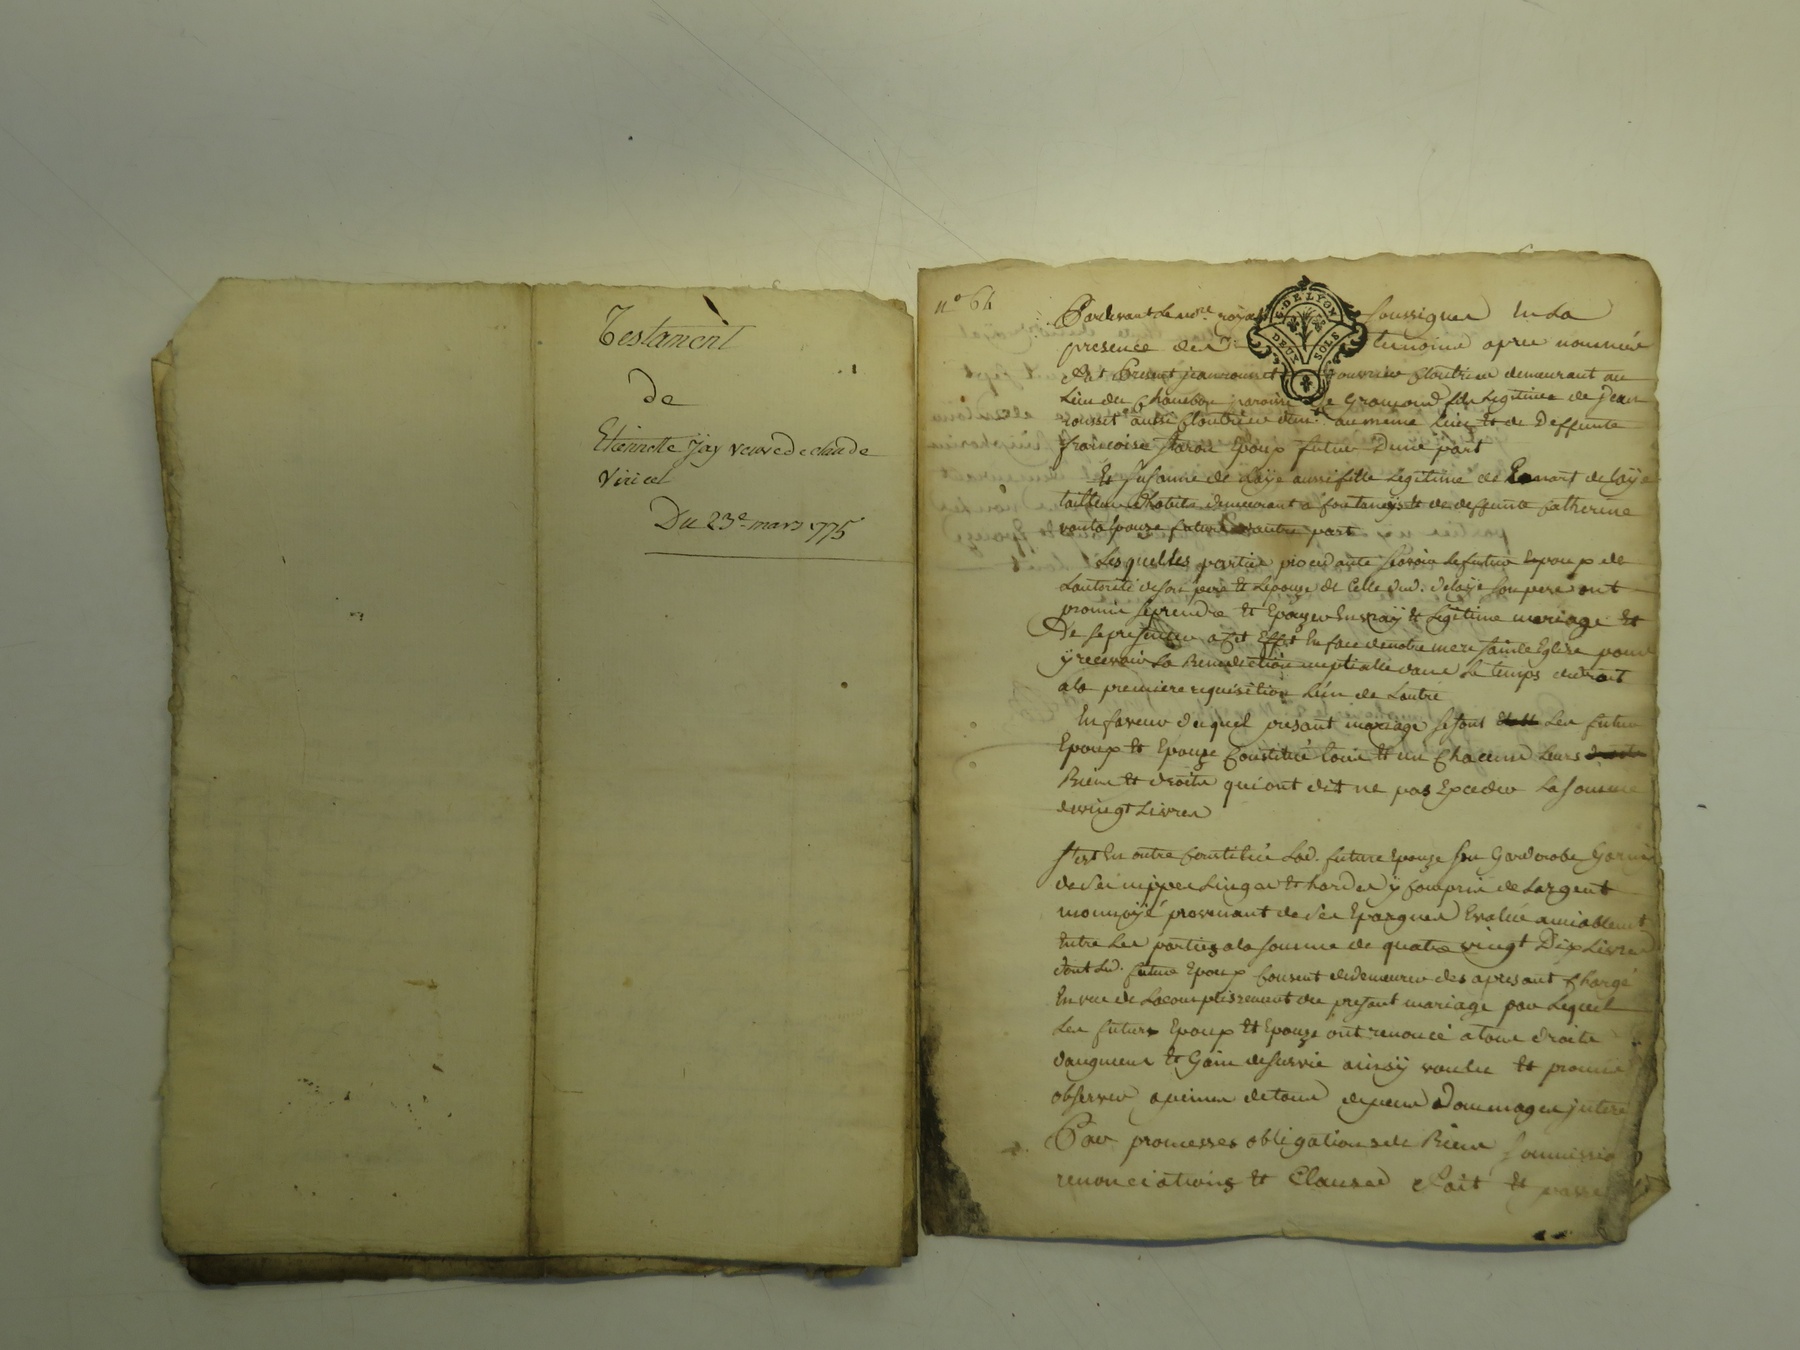 Testament
de
Etiennette Jay veuve de claude
Viricel
Du 23e mars 1775
n° 64
Pardevant Le no.re royal soussigner En La
presence des temoins apres nommés
G. DE LYON
DEUX SOLS
Est Present jean rousset ouvrier demeurant au
Lieu du paroisse de Gramond fils Legitime de jean
rousset aussi dem.t au meme Lieu Et de Deffunte
francoise Epoux futur Dune part
Et Susanne de Laÿe aussi fille Legitime de de Laÿe
tailleur dhabits demeurant a fontaneys Et de deffunte Catherine
Epouze future dautre part
Lesquelles parties procedantes scavoir Le futur Epoux de
Lautorité de son pere Et Lepouze de Celle dud. delaÿe son pere ont
promis se prendre Et Epouzer En vraÿ Et Legitime mariage Et
De se presenter a cet Effet En face de notre mere sainte Eglise pour
ÿ recevoir La Benediction nuptialle dans Le temps de droit
a la premiere requisition Lun de Lautre
En faveur duquel presant mariage se sont Les futur
Epoux Et Epouze Constitué tous Et un Chacuns Leurs
Biens Et droits quils ont dit ne pas Exceder La somme
de vingt Livres
S'est En outre Constitué Lad. future Epouze son Garderobe Garnis
de ses nippes Linges Et hardes ÿ Compris de Largent
monnoÿé provenant de ses Epargnes Evalué amiablement
Entre Les parties a la somme de quatre vingt Dix Livres
dont Led. futur Epoux Consent de demeurer des apresant Chargé
En vue de Lacomplissement du presant mariage par Lequel
Les futurs Epoux Et Epouze ont renoncé a tous droits
daugment Et Gain de survie ainsÿ voulu Et promis
observer a peines de tous depens Dommages interets
Par promesses obligations de Biens soumissions
renonciations Et Clauses fait Et passé